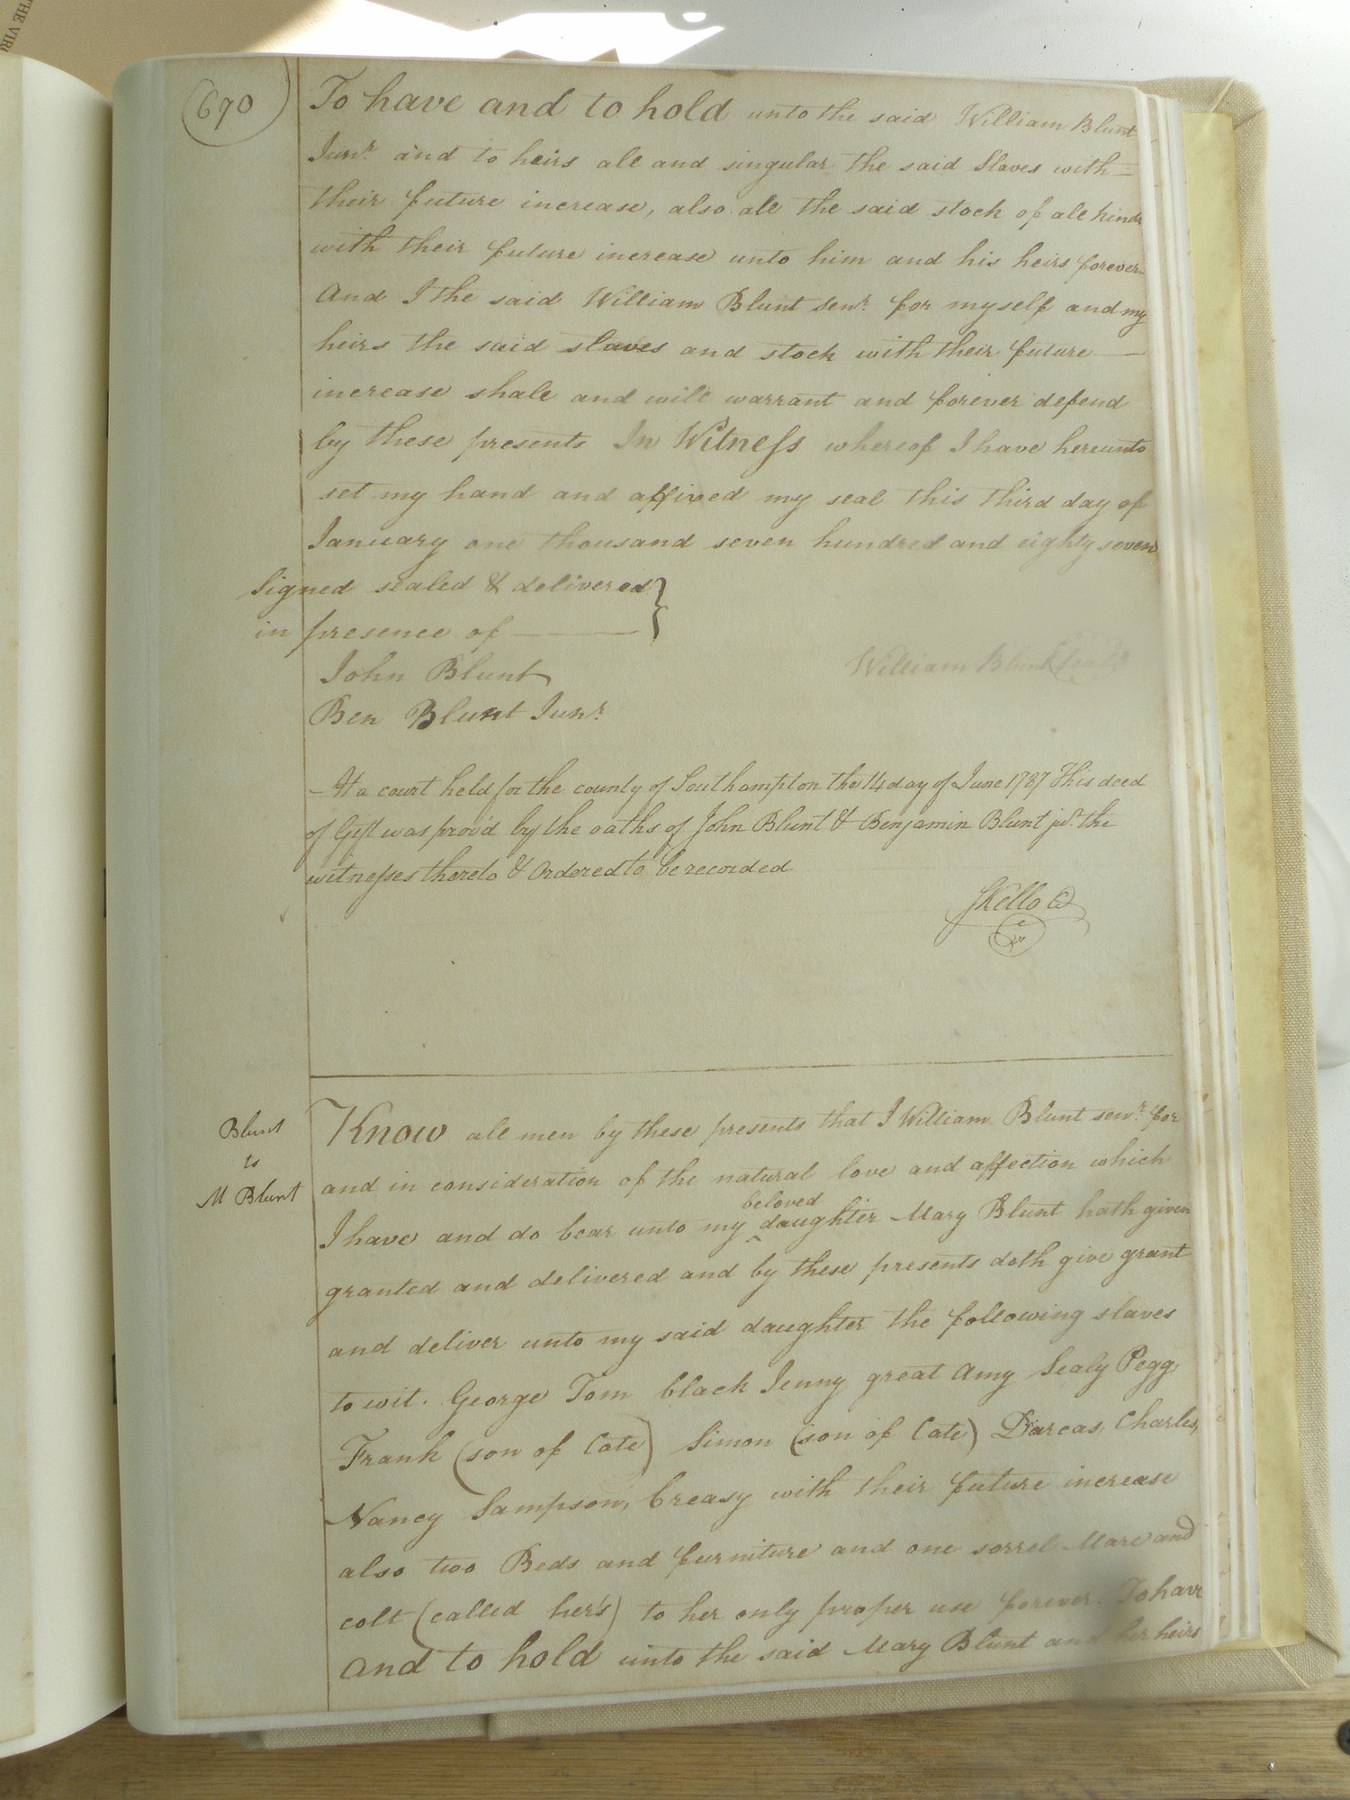 670
To have and to hold unto the said William Blunt
Junr. and to heirs all and singular the said Slaves with
their future increase, also all the said stock of all kinds
with their future increase unto him and his heirs forever
And I the said William Blunt Senr. for myself and my
heirs the said slaves and stock with their future
increase shall and will warrant and forever defend
by these presents In Witness whereof I have hereunto
set my hand and affixed my seal this third day of
January one thousand seven hundred and eighty seven
Signed sealed & delivered }
in presence of
John Blunt
William Blunt (Seal)
Ben Blunt Junr.
At a court held for the county of Southampton the 14 day of June 1787 This deed
of Gift was prov'd by the oaths of John Blunt & Benjamin Blunt jur. the
witnesses thereto & Ordered to be recorded
Kello
Blunt
to
M Blunt
Know all men by these presents that I William Blunt senr. for
and in consideration of the natural love and affection which
I have and do bear unto my ^ beloved daughter Mary Blunt hath given
granted and delivered and by these presents doth give grant
and deliver unto my said daughter the following slaves
to wit. George Tom black Jenny great Amy Sealy Pegg
Frank (son of Cate) Simon (son of Cate) Darcas, Charles,
Nancy Sampson, Creasy with their future increase
also two Beds and furniture and one sorrel Mare and
colt (called hers) to her only proper use forever. To have
and to hold unto the said Mary Blunt and her heirs